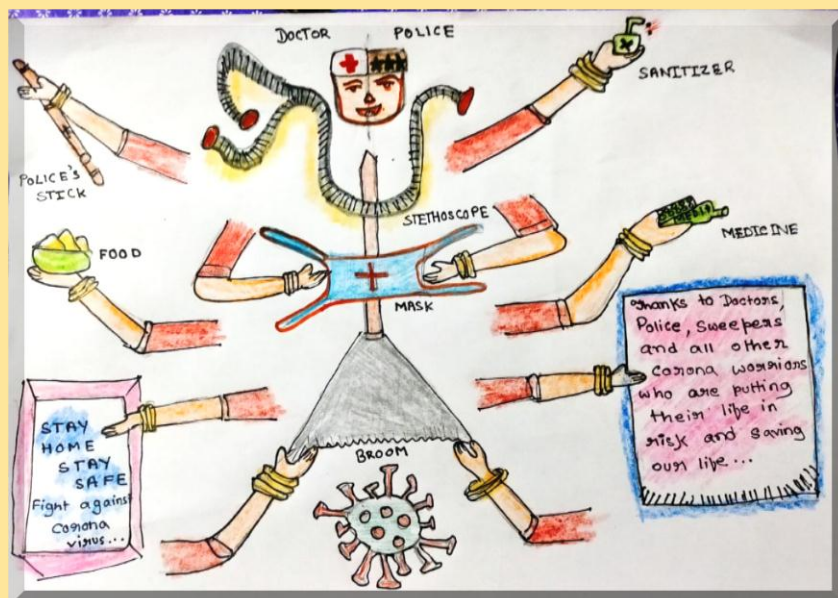 DOCTOR
POLICE
SANITIZER
POLICE'S
STICK
STETHOSCOPE
MEDICINE
FOOD
MASK
Thanks to Doctors,
Police, Sweepers
and all other
corona worriors
who are putting
their life in
risk and saving
our life...
STAY
HOME
STAY
SAFE
Fight against
Corona
virus...
BROOM